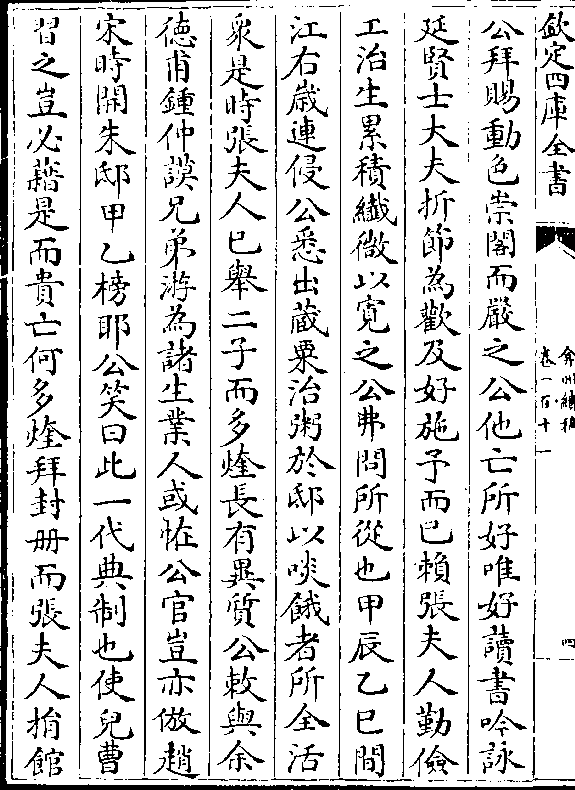 欽定四庫全書
弇州續稿
卷一百十一
四
公拜賜動色崇閣而嚴之公他亡所好唯好讀書吟詠
延賢士大夫折節為歡及好施予而已賴張夫人勤儉
工治生累積纖微以寛之公弗問所從也甲辰乙巳間
江右歳連侵公悉出蔵粟治粥於邸以啖餓者所全活
衆是時張夫人已舉二子而多煃長有異質公敕與余
徳甫鍾仲謨兄弟游為諸生業人或恠公官豈亦倣趙
宋時開朱邸甲乙榜耶公笑曰此一代典制也使兒曹
習之豈必藉是而貴亡何多煃拜封册而張夫人捐館